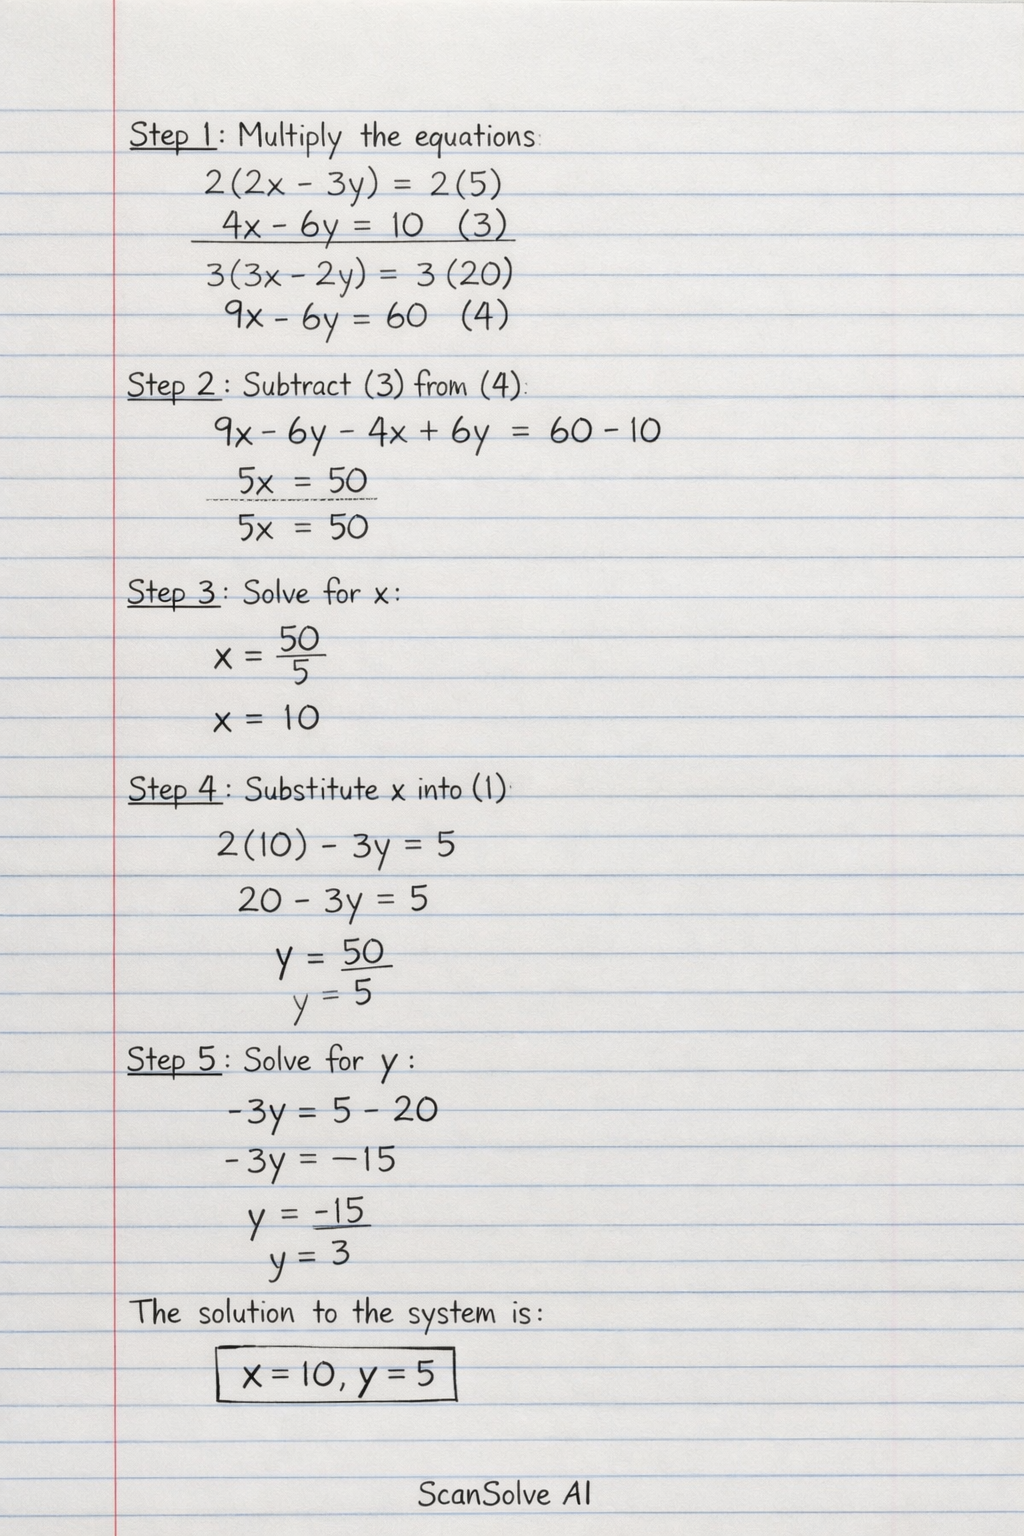 Step 1: Multiply the equations:
2(2x - 3y) = 2(5)
4x - 6y = 10 (3)
3(3x - 2y) = 3(20)
9x - 6y = 60 (4)
Step 2: Subtract (3) from (4):
9x - 6y - 4x + 6y = 60 - 10
5x = 50
5x = 50
Step 3: Solve for x:
x = 50/5
x = 10
Step 4: Substitute x into (1):
2(10) - 3y = 5
20 - 3y = 5
y = 50
y = 5
Step 5: Solve for y:
-3y = 5 - 20
-3y = -15
y = -15
y = 3
The solution to the system is:
x = 10, y = 5
ScanSolve AI